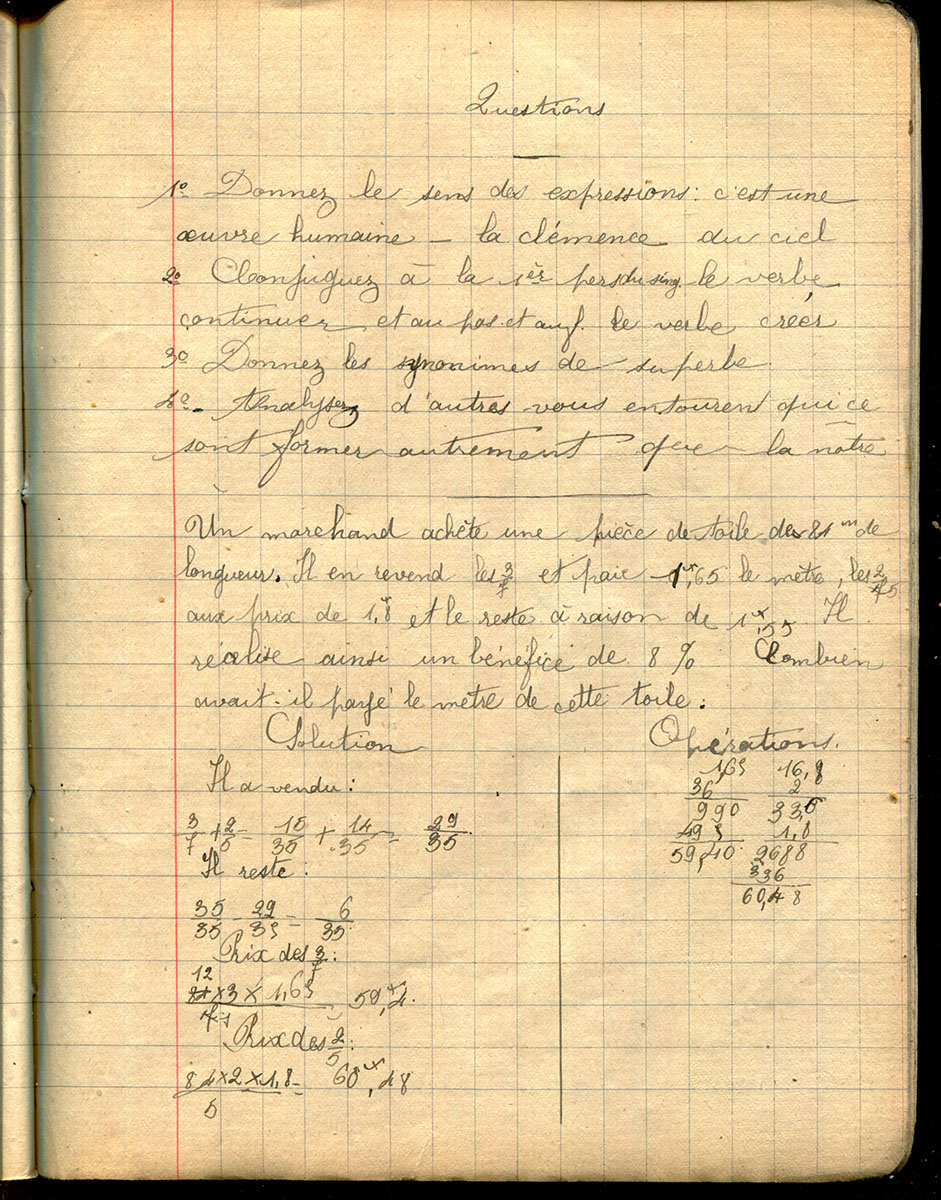 Questions
1º Donnez le sens des expressions: c'est une
œuvre humaine – la clémence du ciel
2º Conjuguez à la 1èr pers du sing. le verbe
continuer et au pas. et au f. le verbe créer
3º Donnez les synonimes de superbe
4º Analysez d'autres vous entourent qui ce
sont former autrement que la nôtre
Un marchand achète une pièce de toile de 84 m de
longueur. Il en revend les 3/7 et paie 1f,65 le mètre, les 2/5
aux prix de 1f,8 et le reste à raison de 1f,55. Il
réalise ainsi un bénéfice de 8 % Combien
avait-il payé le mètre de cette toile:
Solution
Il a vendu:
3/7 + 2/5 = 15/35 + 14/35 = 29/35
Il reste:
35/35 - 29/35 = 6/35
Prix des 3/7:
12
84 x 3 x 1,65 = 59f,4
7 1
Prix des 2/5:
84 x 2 x 1,8 = 60f,48
5
Opérations.
1,65
36
990
495
59,40
16,8
2
33,6
1,8
2688
336
60,48